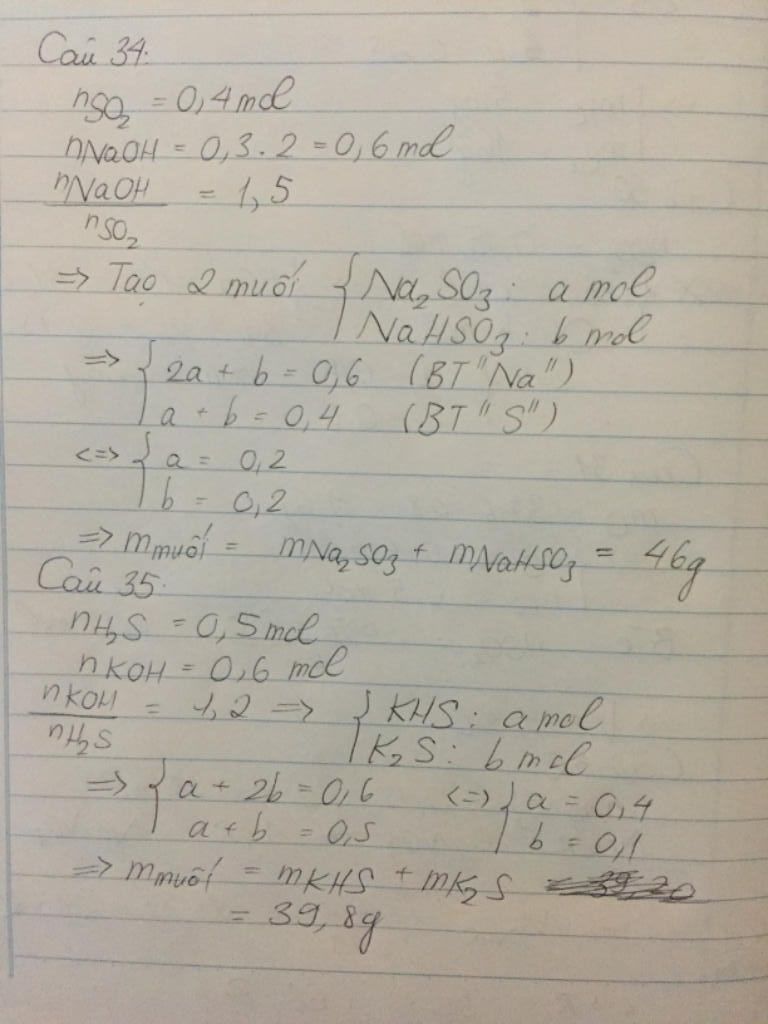 Câu 34:
nSO₂ = 0,4 mol
nNaOH = 0,3 . 2 = 0,6 mol
nNaOH = 1,5
nSO₂
=> Tạo 2 muối { Na₂SO₃ : a mol
NaHSO₃ : b mol
=> { 2a + b = 0,6 (BT "Na")
a + b = 0,4 (BT "S")
<=> { a = 0,2
b = 0,2
=> mmuối = mNa₂SO₃ + mNaHSO₃ = 46g
Câu 35:
nH₂S = 0,5 mol
nKOH = 0,6 mol
nKOH = 1,2 => { KHS : a mol
nH₂S K₂S : b mol
=> { a + 2b = 0,6 <=> { a = 0,4
a + b = 0,5 b = 0,1
=> mmuối = mKHS + mK₂S
= 39,8g